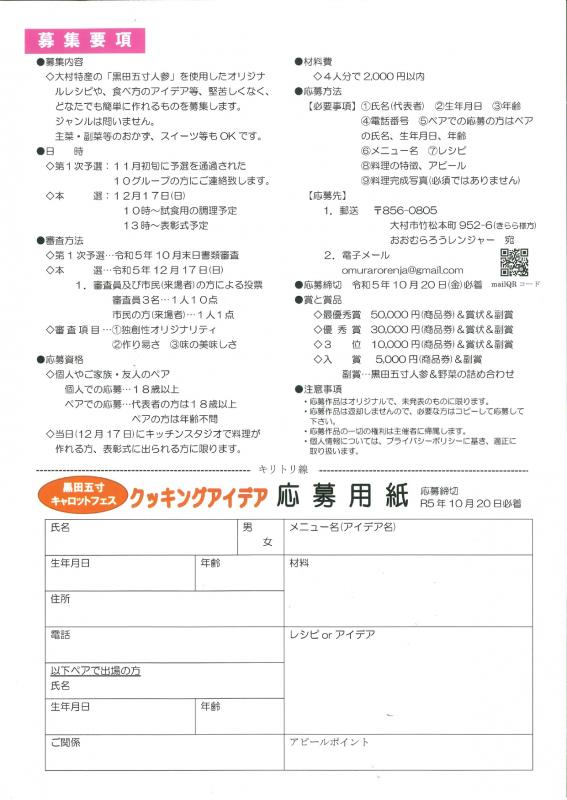 募集要項
●募集内容
◇大村特産の「黒田五寸人参」を使用したオリジナ
ルレシピや、食べ方のアイデア等、堅苦しくなく、
どなたでも簡単に作れるものを募集します。
ジャンルは問いません。
主菜・副菜等のおかず、スイーツ等もOKです。
●日　　時
◇第1次予選：11月初旬に予選を通過された
10グループの方にご連絡致します。
◇本　　選：12月17日(日)
10時～試食用の調理予定
13時～表彰式予定
●審査方法
◇第1次予選…令和5年10月末日書類審査
◇本　　選…令和5年12月17日(日)
1．審査員及び市民(来場者)の方による投票
審査員3名…1人10点
市民の方(来場者)…1人1点
◇審査項目…①独創性オリジナリティ
②作り易さ　③味の美味しさ
●応募資格
◇個人やご家族・友人のペア
個人での応募…18歳以上
ペアでの応募…代表者の方は18歳以上
ペアの方は年齢不問
◇当日(12月17日)にキッチンスタジオで料理が
作れる方、表彰式に出られる方に限ります。
●材料費
◇4人分で2,000円以内
●応募方法
【必要事項】①氏名(代表者)　②生年月日　③年齢
④電話番号　⑤ペアでの応募の方はペア
の氏名、生年月日、年齢
⑥メニュー名　⑦レシピ
⑧料理の特徴、アピール
⑨料理完成写真(必須ではありません)
【応募先】
1．郵送　〒856-0805
大村市竹松本町952-6(きらら様方)
おおむらろうレンジャー　宛
2．電子メール
omurarorenja@gmail.com
●応募締切　令和5年10月20日(金)必着　mailQRコード
●賞と賞品
◇最優秀賞　50,000円(商品券)＆賞状＆副賞
◇優秀賞　30,000円(商品券)＆賞状＆副賞
◇3　位　10,000円(商品券)＆賞状＆副賞
◇入　賞　5,000円(商品券)＆副賞
副賞…黒田五寸人参＆野菜の詰め合わせ
●注意事項
・応募作品はオリジナルで、未発表のものに限ります。
・応募作品は返却しませんので、必要な方はコピーして応募して
下さい。
・応募作品の一切の権利は主催者に帰属します。
・個人情報については、プライバシーポリシーに基き、適正に
取り扱います。
キリトリ線
黒田五寸
キャロットフェス
クッキングアイデア 応募用紙
応募締切
R5年10月20日必着
氏名
男
女
生年月日
年齢
住所
電話
以下ペアで出場の方
氏名
生年月日
年齢
ご関係
メニュー名(アイデア名)
材料
レシピ or アイデア
アピールポイント